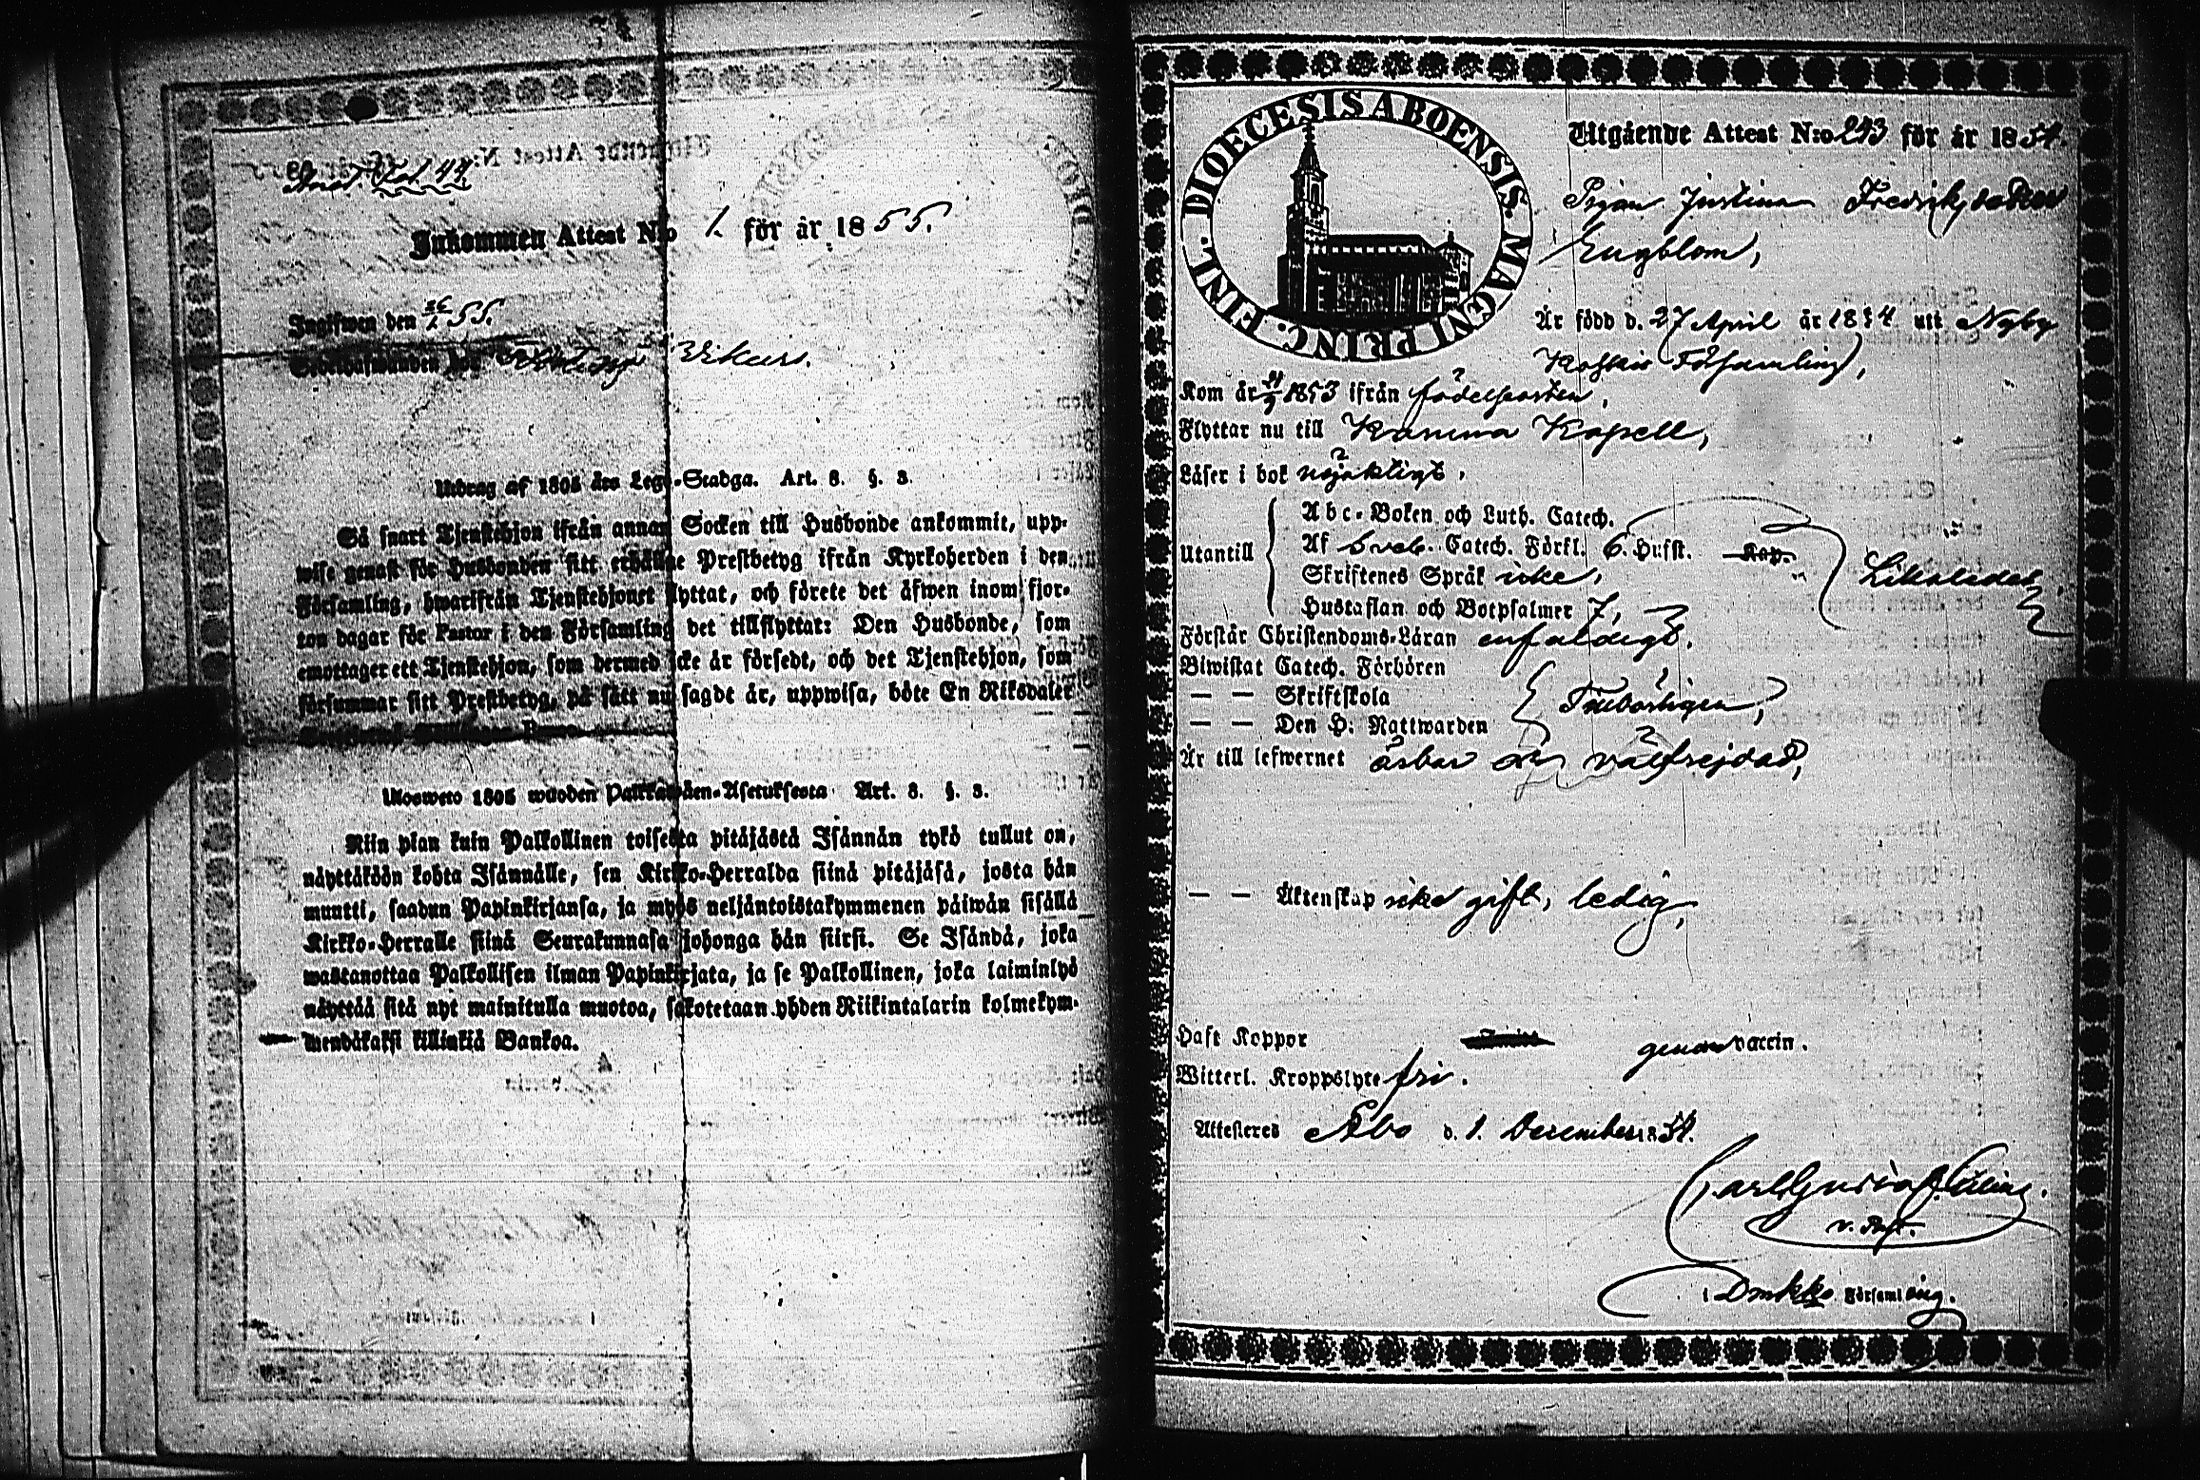 Fol. 44
Inkommen Attest N:o 1. för år 1855.
Ingifwen den 26/1 55.
Wikurs.
Utdrag af 1805 års Lego-Stadga. Art. 8. §. 3.
Så snart Tjenstehjon ifrån annan Socken till Husbonde ankommit, upp-
wise genast för Husbonden sitt erhållne Prestbetyg ifrån Kyrkoherden i den
Församling, hwarifrån Tjenstehjonet flyttat, och förete det äfwen inom fjor-
ton dagar för Pastor i den Församling det tillflyttat: Den Husbonde, som
emottager ett Tjenstehjon, som dermed icke är försedt, och det Tjenstehjon, som
försummar sitt Prestbetyg, på sätt nu sagdt är, uppwisa, böte En Riksdaler
Ulosweto 1805 wuoden Palkkawäen-Asetuksesta Art. 8. §. 3.
Niin pian kuin Palkollinen toisesta pitäjästä Isännän tykö tullut on,
näyttäköön kohta Isännälle, sen Kirkko-Herralda siinä pitäjäsä, josta hän
muutti, saadun Papinkirjansa, ja myös neljäntoistakymmenen päiwän sisällä
Kirkko-Herralle siinä Seurakunnasa johonga hän siirsi. Se Isändä, joka
wastanottaa Palkollisen ilman Papinkirjata, ja se Palkollinen, joka laiminlyö
näyttää sitä nyt mainitulla muotoa, sakotetaan yhden Riikintalarin kolmekym-
mendäkaksi killinkiä Bankoa.
DIOECESIS ABOENSIS. MAGNI PRINC. FINL.
Utgående Attest N:o 243 för år 1854.
Pigan Justina Fredriksdotter
Engblom,
Är född d. 27 April år 1834 uti Nyby
Koskis Församling,
Kom år 11/9 1853 ifrån födelseorten,
Flyttar nu till Karuna Kapell,
Läser i bok nöjaktigt,
Utantill
Abc-Boken och Luth. Catech.
Af Sveb. Catech. Förkl. 6. Hufst. Kap.
Skriftenes Språk icke,
Hustaflan och Botpsalmer 7,
Likaledes,
Förstår Christendoms-Läran enfaldigt,
Biwistat Catech. Förhören
— — Skriftskola
— — Den H. Nattwarden
Tillbörligen,
Är till lefwernet ärbar och välfrejdad,
— — Äktenskap icke gift, ledig,
Haft Koppor genom vaccin.
Witterl. Kroppslyte fri.
Attesteras Åbo d. 1. December 1854.
Carl Gustaf
v. Past.
i Dmkko Församling.